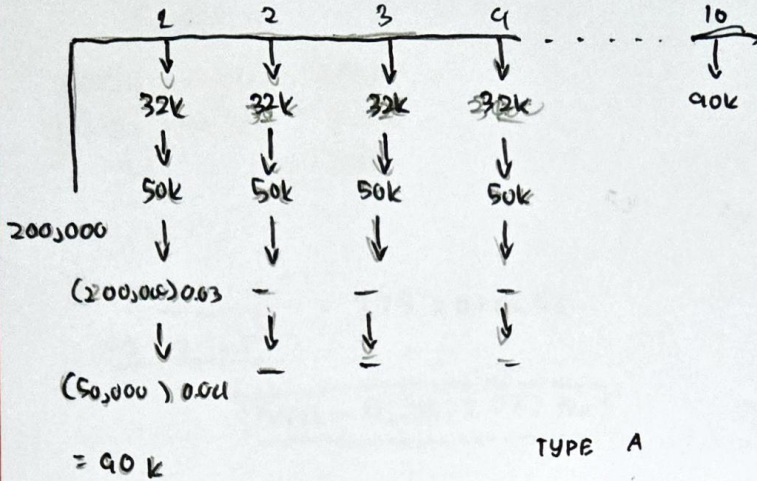 1 2 3 4 . . . . . . 10
32k 32k 32k 32k 90k
50k 50k 50k 50k
200,000
(200,000) 0.03 – – –
(50,000) 0.04 – – –
= 90 k
TYPE A